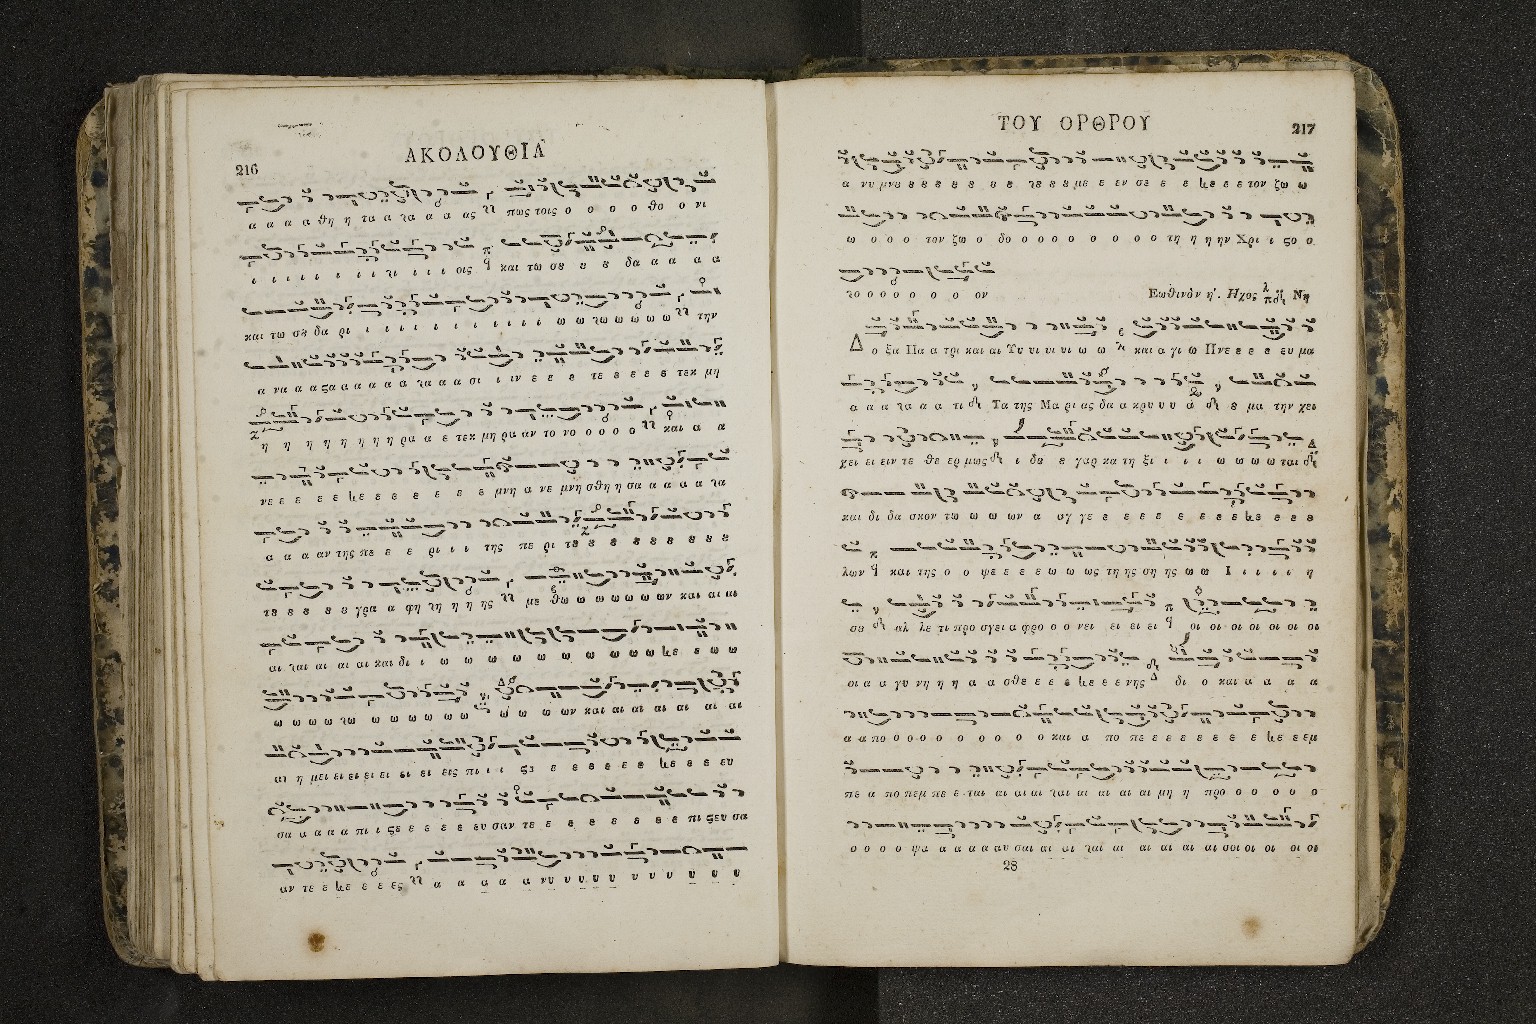 216
ΑΚΟΛΟΥΘΙΑ
α α α α θη η τα α λα α α ας πως τοις ο ο ο ο θο ο νι
ι ι ι ι ι ι ι λι ι ι ι οις και τω σ૪ ૪ ૪ δα α α α α
και τω σ૪ δα ρι ι ι ι ι ι ι ι ι ι ι ι ω ω λω ω ω ω ω την
α να α α ϛα α α α α α λα α α σι ι ιν ε ε ε τε ε ε ε ε τεκ μη
η η η η η η η η ρα α ε τεκ μη ρα αν το νο ο ο ο ο και α α
νε ε ε ε ε κε ε ε ε ε ε ε ε μνη α νε μνη σθη η σα α α α α λα
α α α αν της πε ε ε ρι ι ι της πε ρι τ૪ ૪ ૪ ૪ ૪ ૪ ૪ ૪
τ૪ ૪ ૪ ૪ ૪ γρα α φη λη η η ης με θω ω ω ω ω ω ων και αι αι
αι λαι αι αι αι και δι ι ω ω ω ω ω ω ω ω ω ω κε ε ω ω
ω ω ω ω λω ω ω ω ω ω ω ω ω ω ων και αι αι αι αι αι αι
αι η μει ει ει ει ει ει ει εις πι ι ι ϛε ε ε ε ε ε ε κε ε ε ευ
σα α α α α πι ι ϛε ε ε ε ε ευ σαν τε ε ε ε ε ε ε ε ε πι ϛευ σα
αν τε ε κε ε ε ες α α α α α νυ υ υ υ υ υ υ υ υ υ υ
ΤΟΥ ΟΡΘΡΟΥ
217
α νυ μν૪ ૪ ૪ ૪ ૪ ૪ ૪ ૪ λ૪ ૪ ૪ με ε εν σε ε ε ε κε ε ε τον ζω ω
ω ο ο ο τον ζω ο δο ο ο ο ο ο ο ο ο τη η η ην Χρι ι ϛο ο
λο ο ο ο ο ο ο ο ον
Εωθινὸν η΄. Ηχος πλ δ Νη
Δο ξα Πα α τρι και αι Υυ υι υι υι ω ω και α γι ω Πνε ε ε ε ευ μα
α α α λα α α τι Τα της Μα ρι ας δα α κρυ υ υ α ૪ μα την χει
χει ει ειν τε θε ερ μως ι δα ε γαρ κα τη ξι ι ι ι ω ω ω ω ται
και δι δα σκον τω ω ω ων α αγ γε ε ε ε ε ε ε ε ε κε ε ε ε
λων και της ο ο ψε ε ε ε ω ω ω ως τη ης ση ης ω ω Ι ι ι ι ι η
σ૪ αλ λε τι προ σγει α φρο ο ο νει ει ει ει οι οι οι οι οι οι οι
οι α α γυ νη η η α α σθε ε ε ε κε ε ε νης δι ο και α α α α
α α πο ο ο ο ο ο ο ο ο ο και α πο πε ε ε ε ε ε ε ε κε ε εμ
πε α πο πεμ πε ε ται αι αι αι λαι αι αι αι αι μη η προ ο ο ο ο ο
ο ο ο ο ψα α α α α αυ σαι αι αι λαι αι αι αι αι αι σοι οι οι οι οι
28